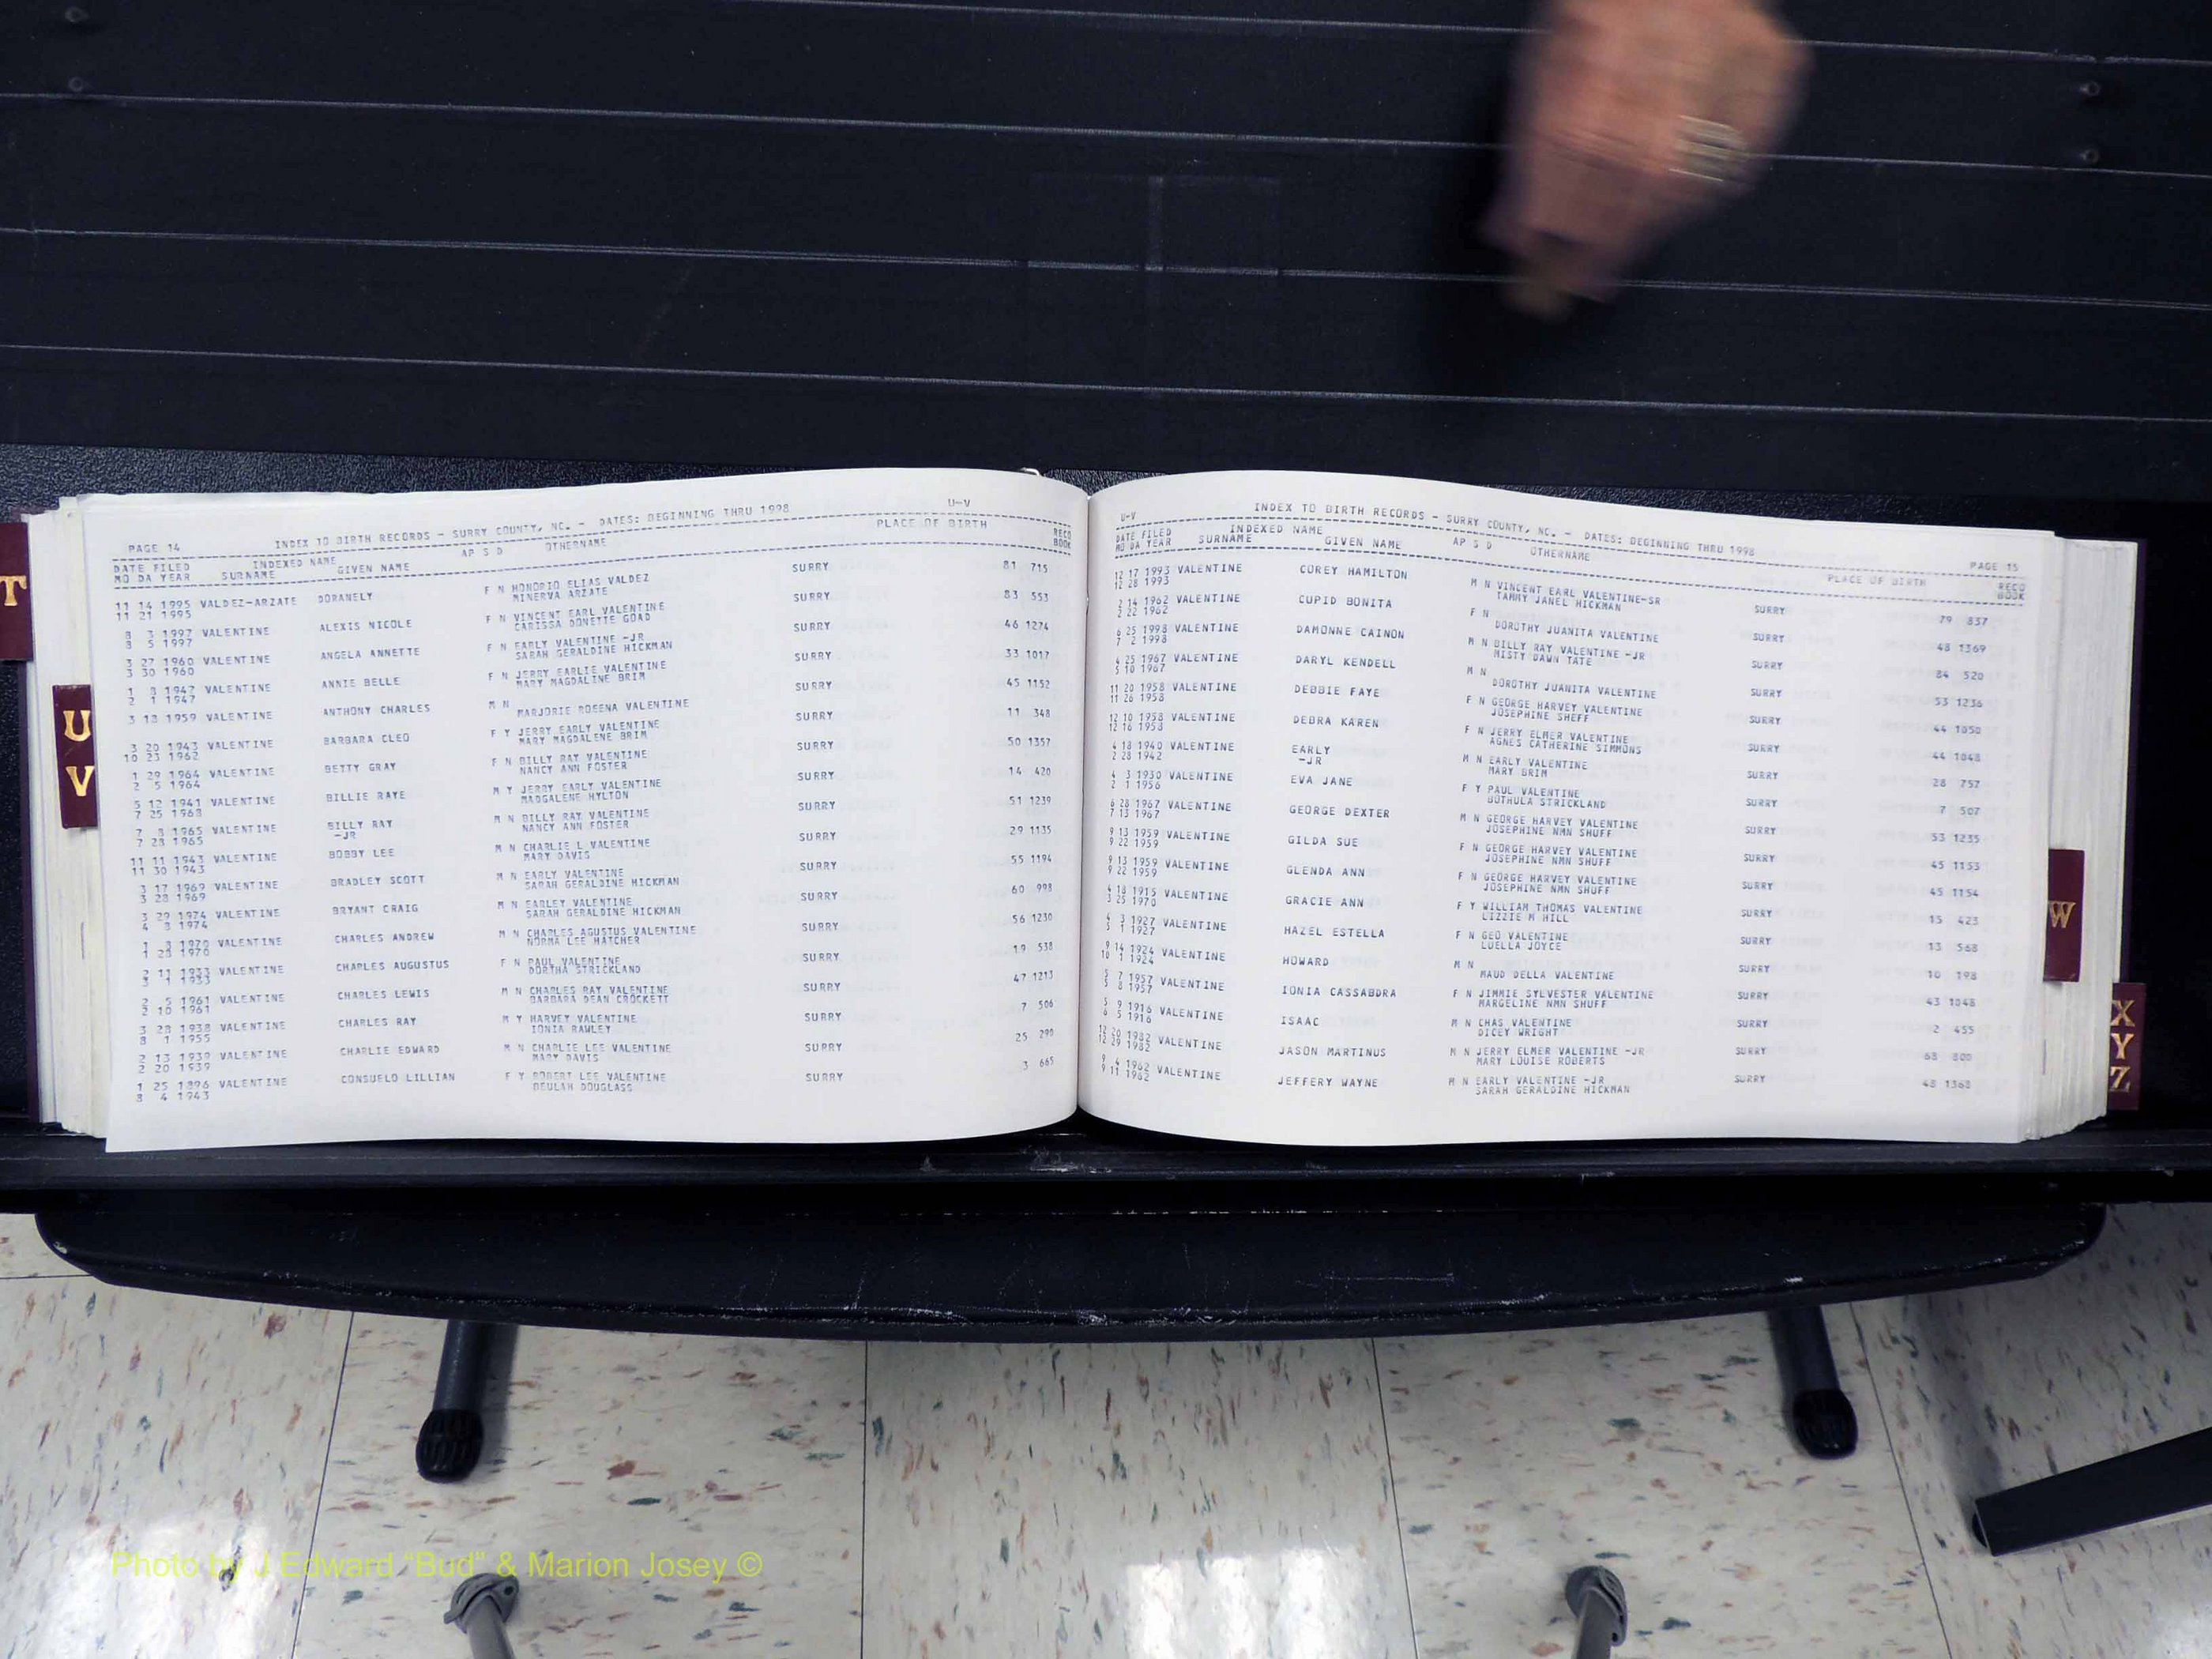 T
U
V
W
X
Y
Z
U-V
PAGE 14 INDEX TO BIRTH RECORDS - SURRY COUNTY, NC. - DATES: BEGINNING THRU 1998
DATE FILED INDEXED NAME AP S D OTHERNAME PLACE OF BIRTH RECO
MO DA YEAR SURNAME GIVEN NAME BOOK
11 14 1995 VALDEZ-ARZATE DORANELY F N HONORIO ELIAS VALDEZ SURRY 81 715
11 21 1995 MINERVA ARZATE
8 3 1997 VALENTINE ALEXIS NICOLE F N VINCENT EARL VALENTINE SURRY 83 553
8 5 1997 CARISSA DONETTE GOAD
3 27 1960 VALENTINE ANGELA ANNETTE F N EARLY VALENTINE -JR SURRY 46 1274
3 30 1960 SARAH GERALDINE HICKMAN
1 8 1947 VALENTINE ANNIE BELLE F N JERRY EARLIE VALENTINE SURRY 33 1017
2 1 1947 MARY MAGDALINE BRIM
3 18 1959 VALENTINE ANTHONY CHARLES M N SURRY 45 1152
MARJORIE ROSENA VALENTINE
3 20 1943 VALENTINE BARBARA CLEO F Y JERRY EARLY VALENTINE SURRY 11 348
10 23 1962 MARY MAGDALENE BRIM
1 29 1964 VALENTINE BETTY GRAY F N BILLY RAY VALENTINE SURRY 50 1357
2 5 1964 NANCY ANN FOSTER
5 12 1941 VALENTINE BILLIE RAYE M Y JERRY EARLY VALENTINE SURRY 14 420
7 25 1968 MADGALENE HYLTON
7 8 1965 VALENTINE BILLY RAY M N BILLY RAY VALENTINE SURRY 51 1239
7 28 1965 -JR NANCY ANN FOSTER
11 11 1943 VALENTINE BOBBY LEE M N CHARLIE L VALENTINE SURRY 29 1135
11 30 1943 MARY DAVIS
3 17 1969 VALENTINE BRADLEY SCOTT M N EARLY VALENTINE SURRY 55 1194
3 28 1969 SARAH GERALDINE HICKMAN
3 29 1974 VALENTINE BRYANT CRAIG M N EARLEY VALENTINE SURRY 60 998
4 8 1974 SARAH GERALDINE HICKMAN
1 3 1970 VALENTINE CHARLES ANDREW M N CHARLES AGUSTUS VALENTINE SURRY 56 1230
1 28 1970 NORMA LEE HATCHER
2 11 1933 VALENTINE CHARLES AUGUSTUS F N PAUL VALENTINE SURRY 19 538
3 1 1933 DORTHA STRICKLAND
2 5 1961 VALENTINE CHARLES LEWIS M N CHARLES RAY VALENTINE SURRY 47 1213
2 10 1961 BARBARA DEAN CROCKETT
3 28 1938 VALENTINE CHARLES RAY M Y HARVEY VALENTINE SURRY 7 506
8 1 1955 IONIA RAWLEY
2 13 1939 VALENTINE CHARLIE EDWARD M N CHARLIE LEE VALENTINE SURRY 25 290
2 20 1939 MARY DAVIS
1 25 1896 VALENTINE CONSUELO LILLIAN F Y ROBERT LEE VALENTINE SURRY 3 665
8 4 1943 BEULAH DOUGLASS
U-V INDEX TO BIRTH RECORDS - SURRY COUNTY, NC. - DATES: BEGINNING THRU 1998 PAGE 15
DATE FILED INDEXED NAME AP S D OTHERNAME PLACE OF BIRTH RECO
MO DA YEAR SURNAME GIVEN NAME BOOK
12 17 1993 VALENTINE COREY HAMILTON M N VINCENT EARL VALENTINE-SR SURRY 79 837
12 28 1993 TAMMY JANEL HICKMAN
2 14 1962 VALENTINE CUPID BONITA F N SURRY 48 1369
2 22 1962 DOROTHY JUANITA VALENTINE
6 25 1998 VALENTINE DAMONNE CAINON M N BILLY RAY VALENTINE -JR SURRY 84 520
7 2 1998 MISTY DAWN TATE
4 25 1967 VALENTINE DARYL KENDELL M N SURRY 53 1236
5 10 1967 DOROTHY JUANITA VALENTINE
11 20 1958 VALENTINE DEBBIE FAYE F N GEORGE HARVEY VALENTINE SURRY 44 1050
11 26 1958 JOSEPHINE SHEFF
12 10 1958 VALENTINE DEBRA KAREN F N JERRY ELMER VALENTINE SURRY 44 1048
12 16 1958 AGNES CATHERINE SIMMONS
4 18 1940 VALENTINE EARLY M N EARLY VALENTINE SURRY 28 757
2 28 1942 -JR MARY BRIM
4 3 1930 VALENTINE EVA JANE F Y PAUL VALENTINE SURRY 7 507
2 1 1956 BUTHULA STRICKLAND
6 28 1967 VALENTINE GEORGE DEXTER M N GEORGE HARVEY VALENTINE SURRY 53 1235
7 13 1967 JOSEPHINE NMN SHUFF
9 13 1959 VALENTINE GILDA SUE F N GEORGE HARVEY VALENTINE SURRY 45 1153
9 22 1959 JOSEPHINE NMN SHUFF
9 13 1959 VALENTINE GLENDA ANN F N GEORGE HARVEY VALENTINE SURRY 45 1154
9 22 1959 JOSEPHINE NMN SHUFF
4 18 1915 VALENTINE GRACIE ANN F Y WILLIAM THOMAS VALENTINE SURRY 15 423
3 25 1970 LIZZIE M HILL
4 3 1927 VALENTINE HAZEL ESTELLA F N GEO VALENTINE SURRY 13 568
5 1 1927 LUELLA JOYCE
9 14 1924 VALENTINE HOWARD M N SURRY 10 198
10 1 1924 MAUD DELLA VALENTINE
5 7 1957 VALENTINE IONIA CASSABDRA F N JIMMIE SYLVESTER VALENTINE SURRY 43 1048
5 8 1957 MARGELINE NMN SHUFF
5 9 1916 VALENTINE ISAAC M N CHAS VALENTINE SURRY 2 455
6 5 1916 DICEY WRIGHT
12 20 1982 VALENTINE JASON MARTINUS M N JERRY ELMER VALENTINE -JR SURRY 68 800
12 29 1982 MARY LOUISE ROBERTS
9 4 1962 VALENTINE JEFFERY WAYNE M N EARLY VALENTINE -JR SURRY 48 1368
9 11 1962 SARAH GERALDINE HICKMAN
Photo by J Edward "Bud" & Marion Josey ©